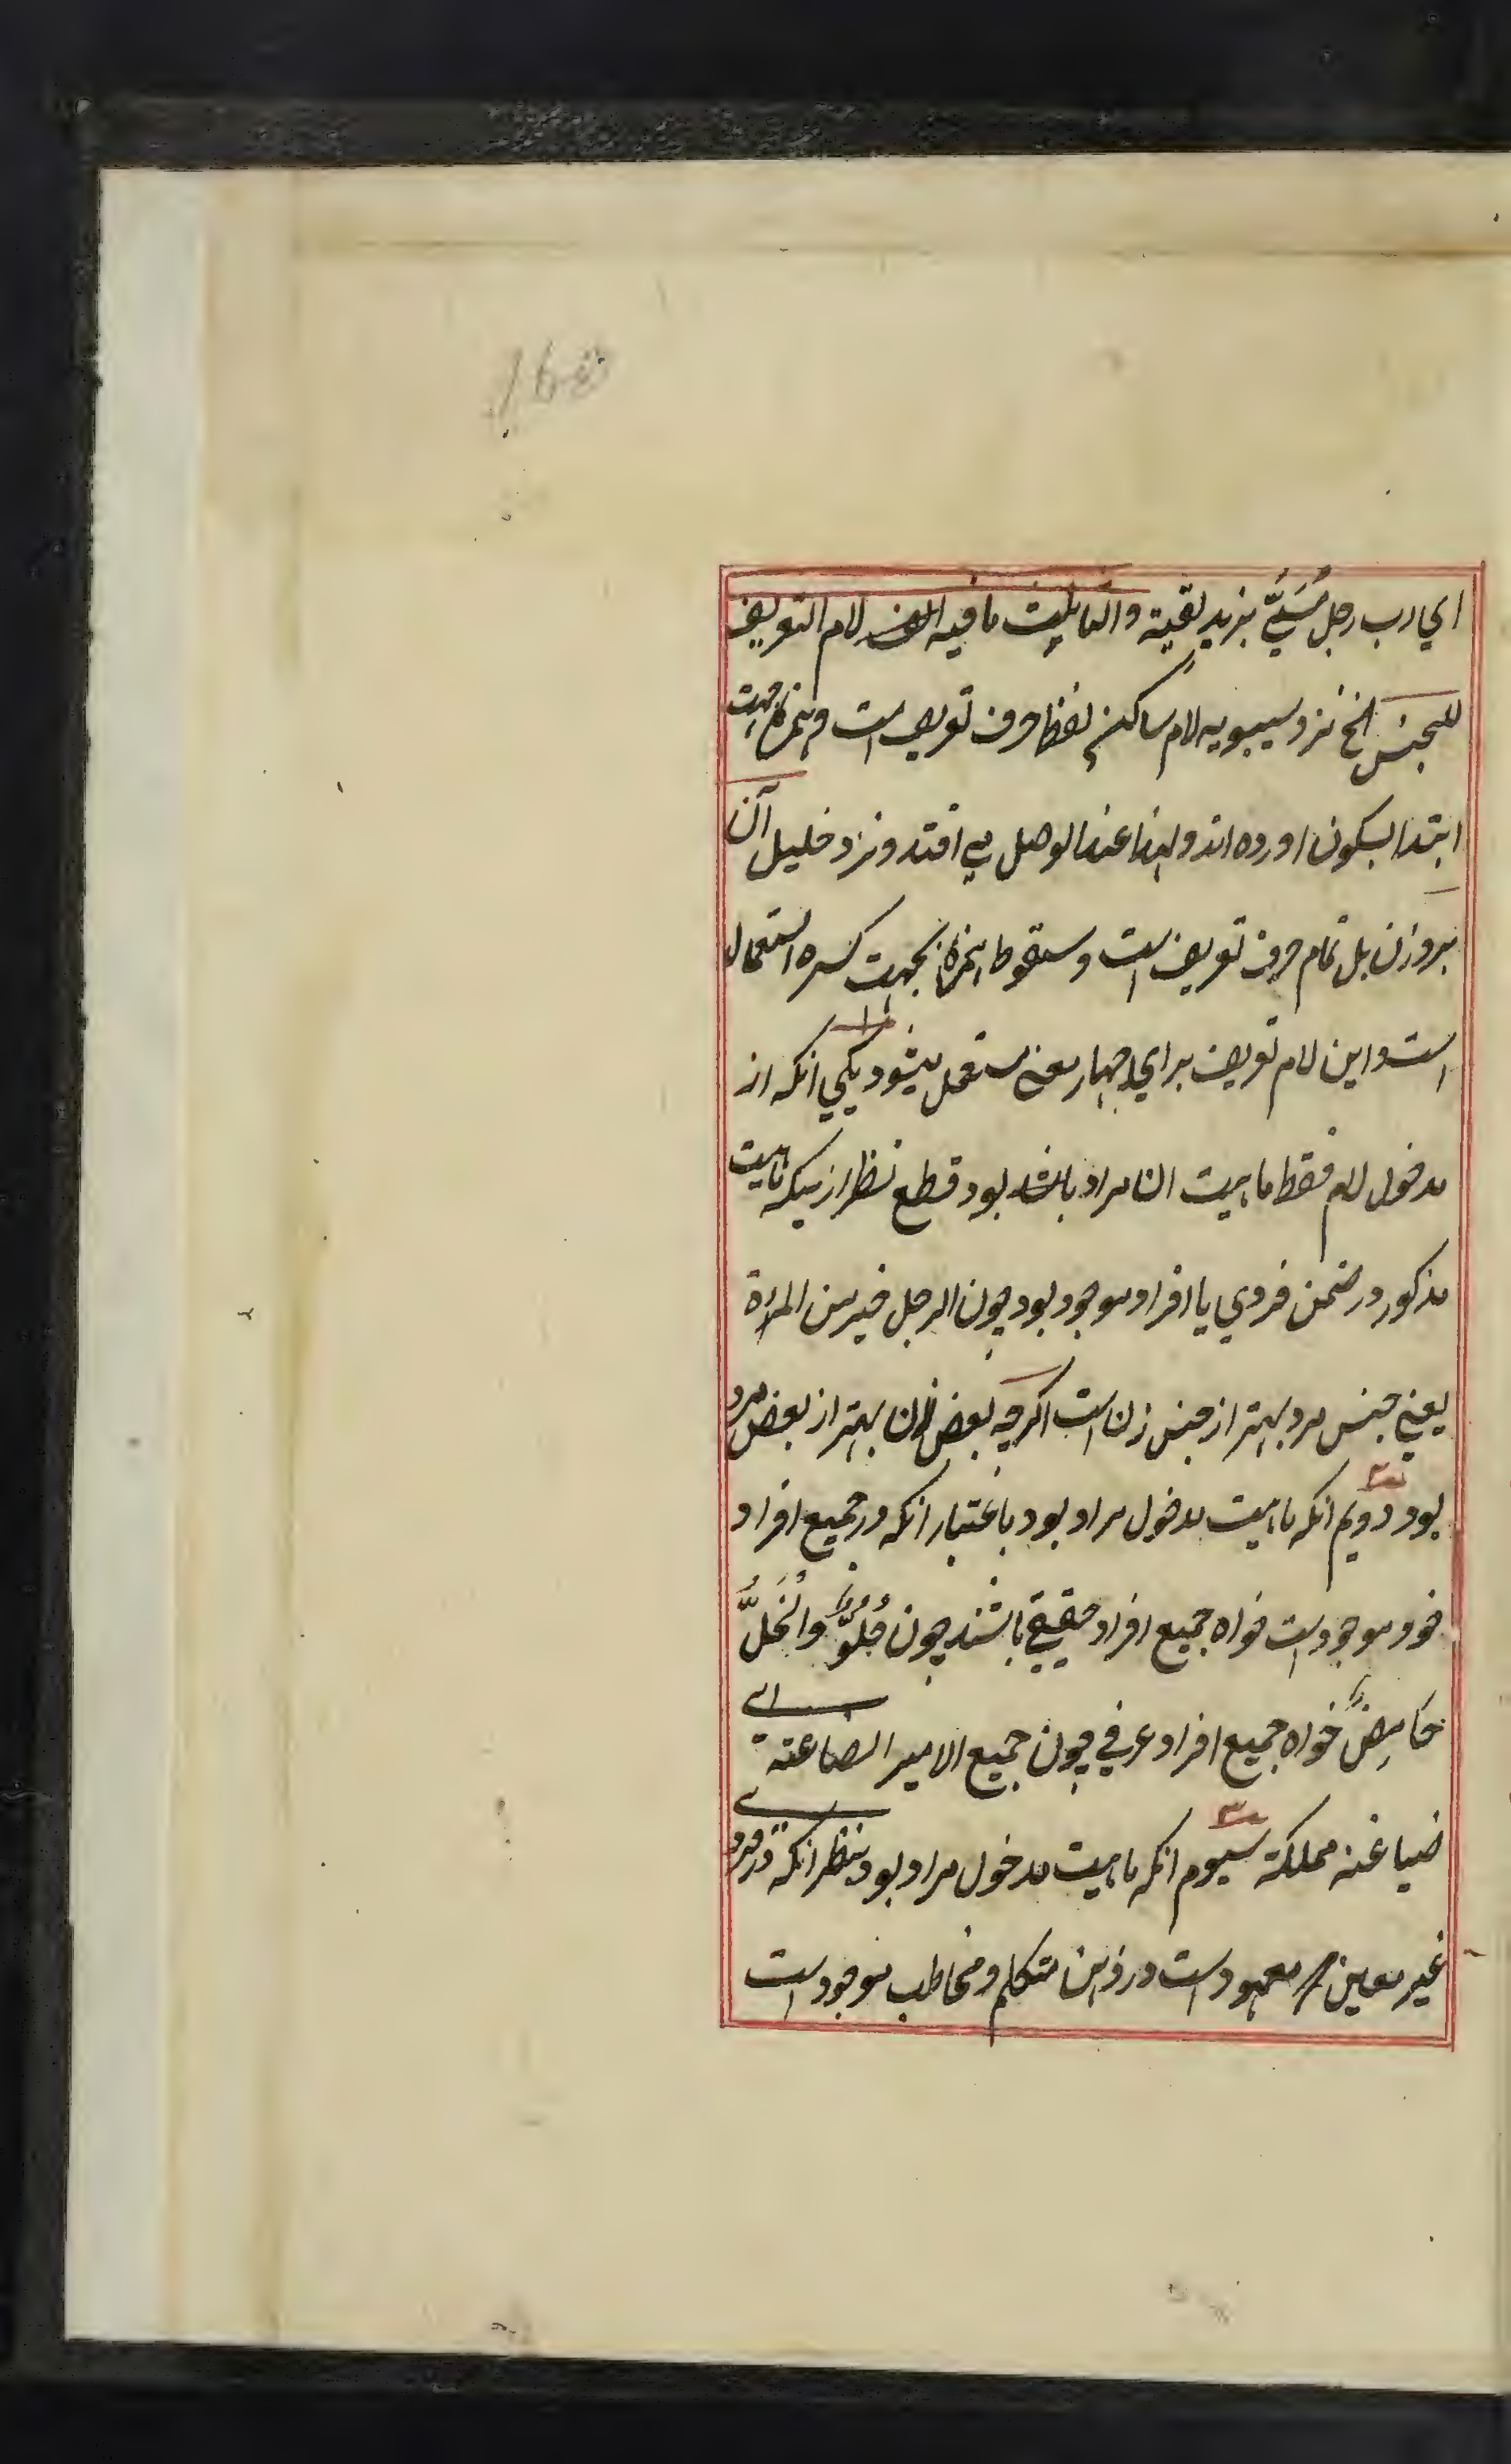 اي رب رجل مُسَمًّي بزيد لقيته والثالث ما فيه لام التعريف
للجنس الخ نزد سيبويه لام ساكن فقط حرف تعريف است و همزه بجهت
ابتدا بسكون اورده اند و لهذا عند الوصل مي افتد و نزد خليل آن
بروزن بل تمام حرف تعريف است و سقوط همزه بجهت كسره استعمال
است و اين لام تعريف براي چهار معني مستعمل ميشود يكي انكه از
مدخول لام فقط ماهيت مراد بود قطع نظر ازينكه ماهيت
مذكور در ضمن فردي يا افراد موجود بود چون الرجل خير من المراة
يعني جنس مرد بهتر از جنس زن است اكرچه بعض زن بهتر از بعض مرد
بود دويم انكه ماهيت مدخول مراد بود باعتبار انكه در جميع افراد
خود موجود است خواه جميع افراد حقيقي باشند چون حُلُوٌّ والخَلُّ
حَامِضٌ خواه جميع افراد عرفي چون جميع الامير الصاغته اي
ضياغنه مملكته سيوم انكه ماهيت مدخول مراد بود بنظر انكه در فرد
غير معين معهود است در ذهن متكلم و مخاطب موجود است